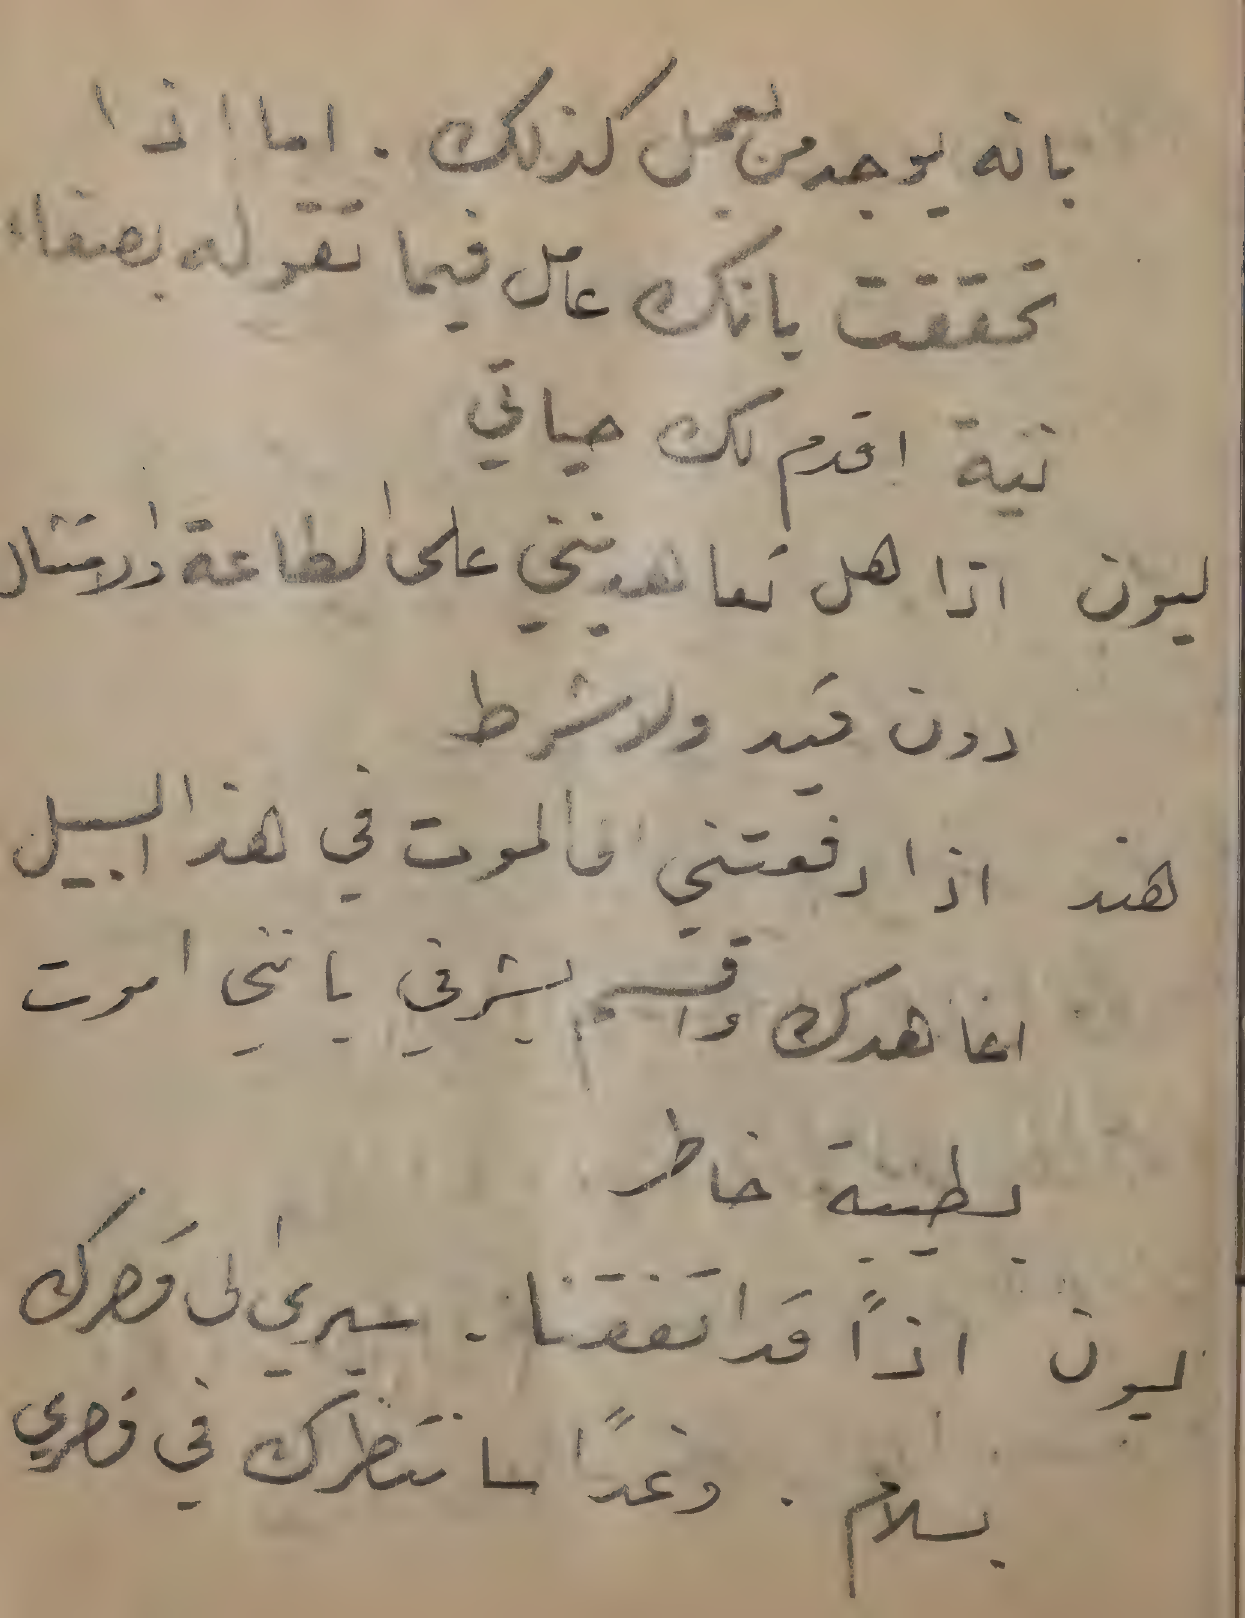 بانه يوجد من يعمل كذلك . اما اذا
تحققت بانك عامل فيما تقوله بصفاء
نية اقدم لك حياتي
ليون اذا هل تعاهدينني على الطاعة والامتثال
دون قيد ولا شرط
هند اذا دفعتني الى الموت في هذا السبيل
اعاهدك واقسم بشرفي بانني اموت
بطيبة خاطر
ليون اذاً قد اتفقنا . سيري الى قصرك
بسلام . وغداً سانتظرك في قصري